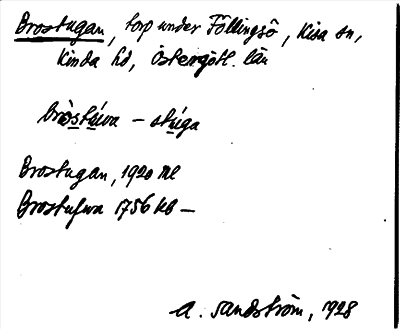 Brostugan, torp under Föllingsö, Kisa sn,
Kinda hd, Östergötl. län
bròstúwa – stúga
Brostugan, 1920
Brostufwa 1756 kb –
A. Sandström, 1928